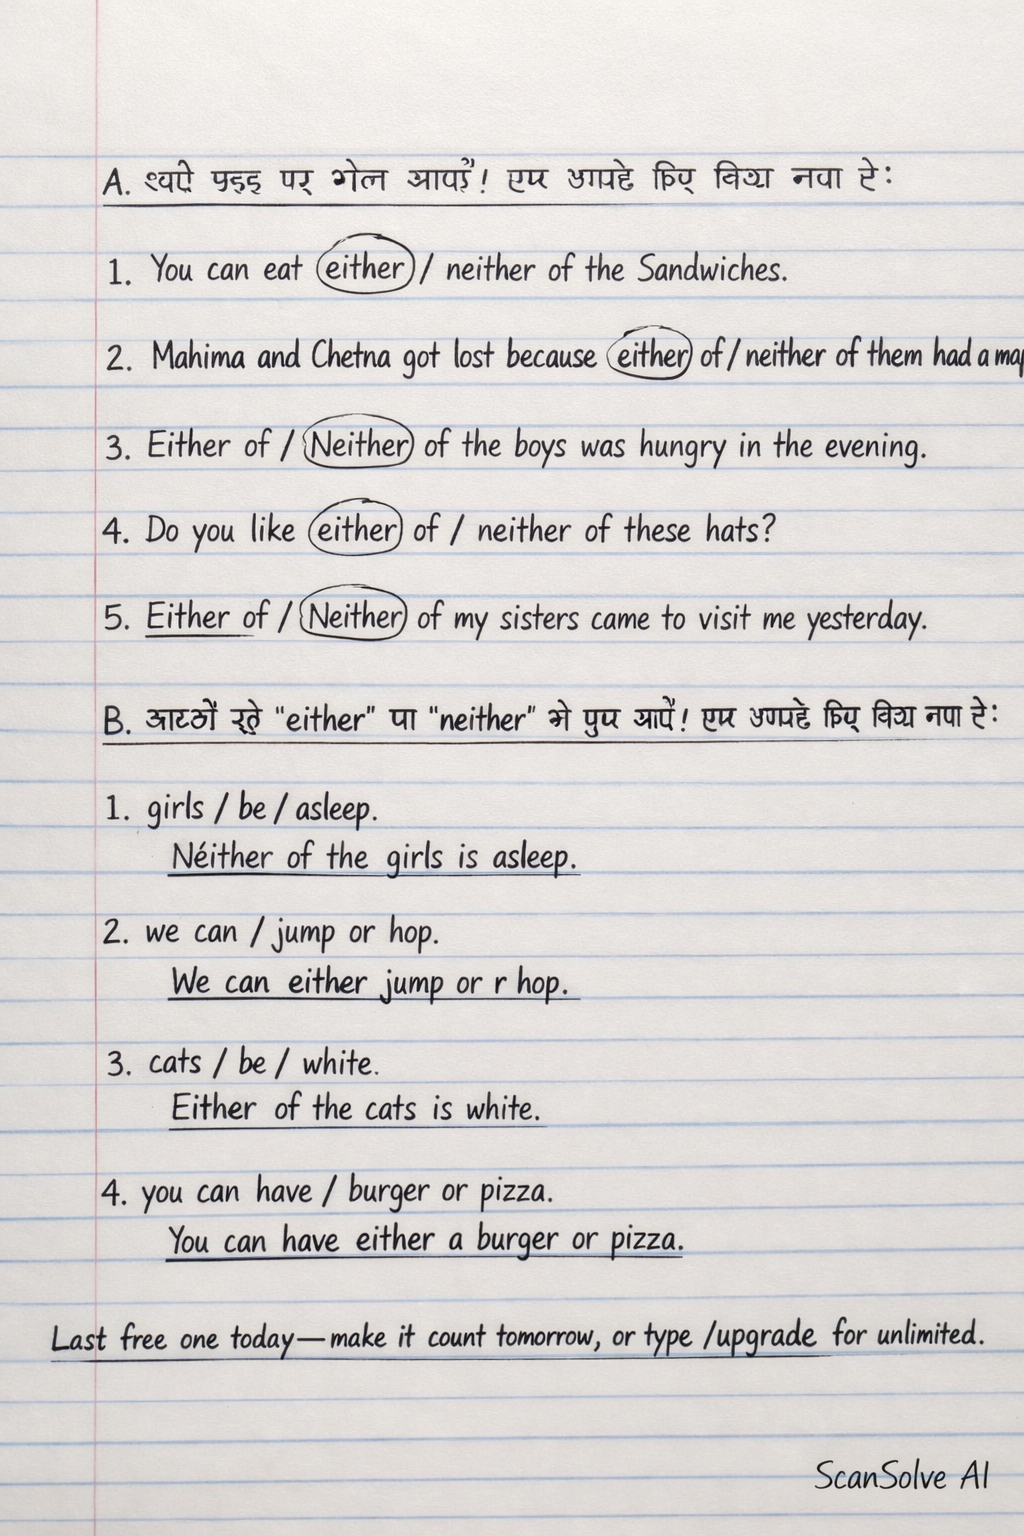 A. पर
1. You can eat either / neither of the Sandwiches.
2. Mahima and Chetna got lost because either of / neither of them had a map
3. Either of / Neither of the boys was hungry in the evening.
4. Do you like either of / neither of these hats?
5. Either of / Neither of my sisters came to visit me yesterday.
B. "either" या "neither"
1. girls / be / asleep.
Néither of the girls is asleep.
2. we can / jump or hop.
We can either jump or r hop.
3. cats / be / white.
Either of the cats is white.
4. you can have / burger or pizza.
You can have either a burger or pizza.
Last free one today—make it count tomorrow, or type /upgrade for unlimited.
ScanSolve AI